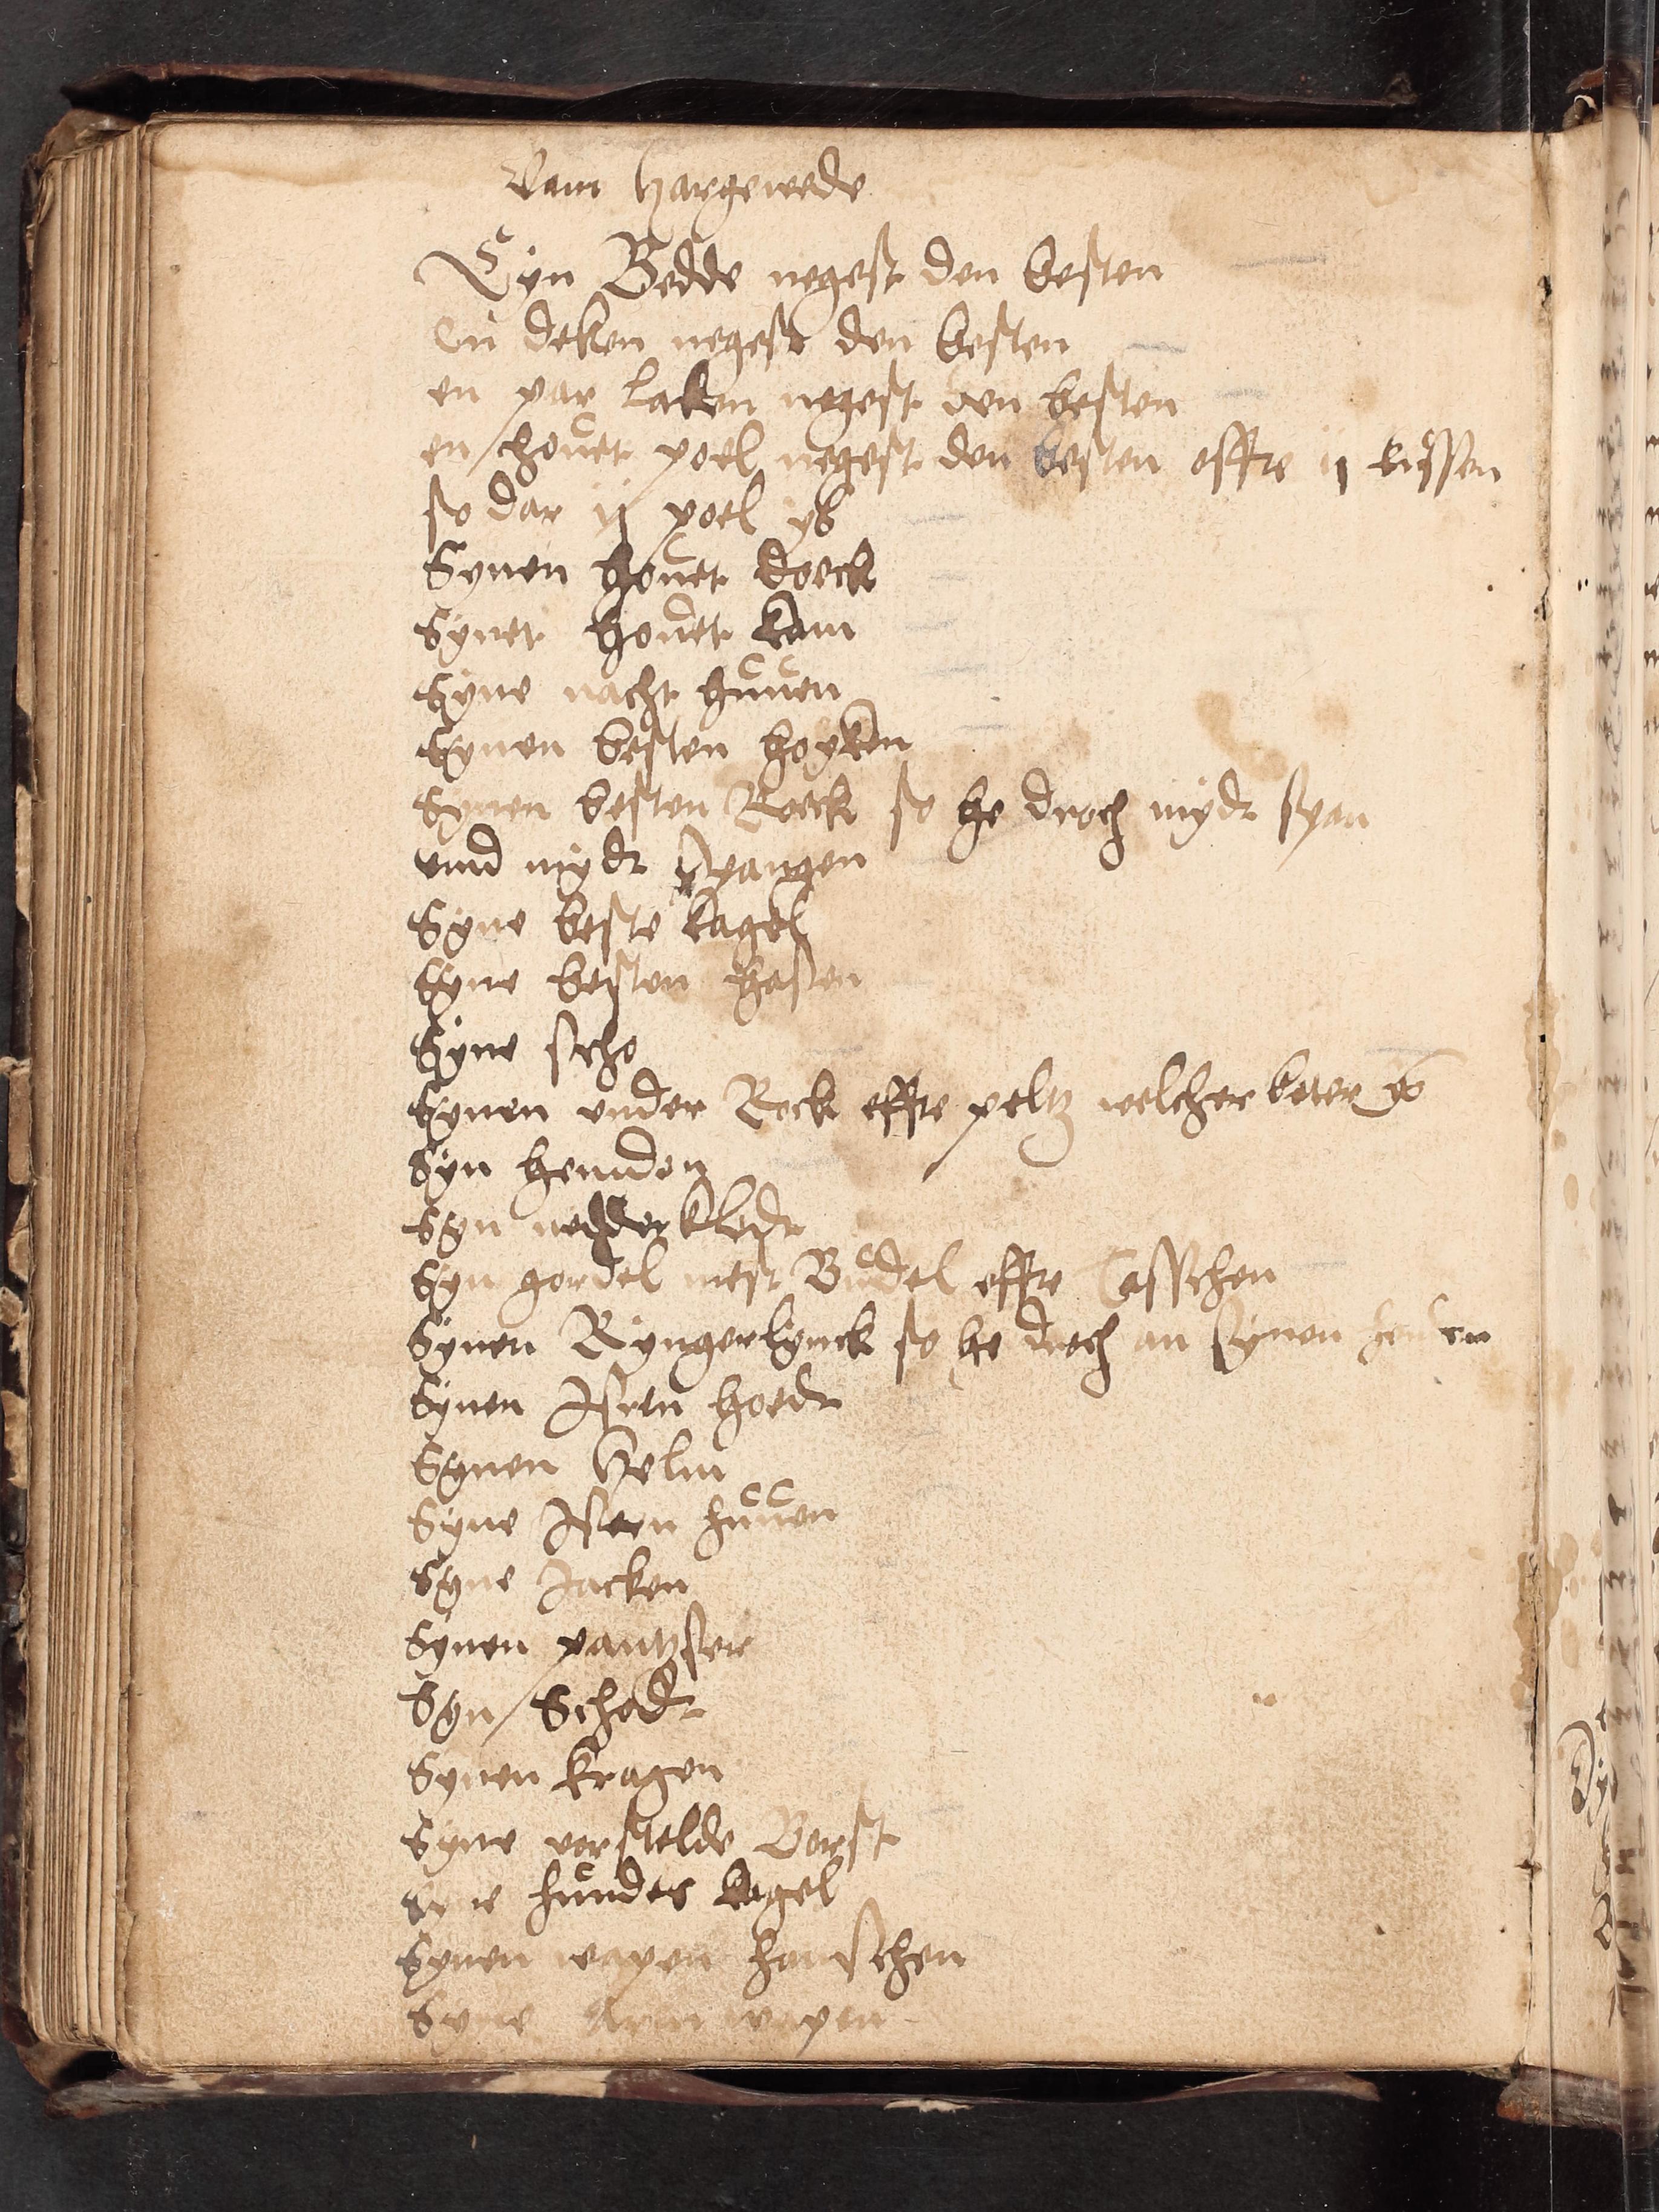 Vam Hargewede
Eyn Bedde negest den besten
En deken negest den besten
en par laken negest den besten
en hovet poel negest den besten effte ij küssen
so dar ij poel ys
Synen hovet doeck
Synen hovet kam
Syne nacht hüven
Synen besten hoyken
Synen besten Rock so he droch mydt span
vnd mydt spangen
Syne beste kagel
Syne besten hasen
Syne scho
Synen vnder Rock effte peltz welcher beter ys
Syn hemden
Syn nedder kledt
Syn gordel mest Büdel effte Tasschen
Synen Ryngerlynck so he droch an synen henden
Synen Isern hoedt
Synen Helm
Syne Isern hüven
Syne Jacken
Synen pantzser
Syn Schodt
Synen kragen
Syne vorstelde Borst
Syne hundes kagel
Synen wapen hanschen
Syne Arm wapen